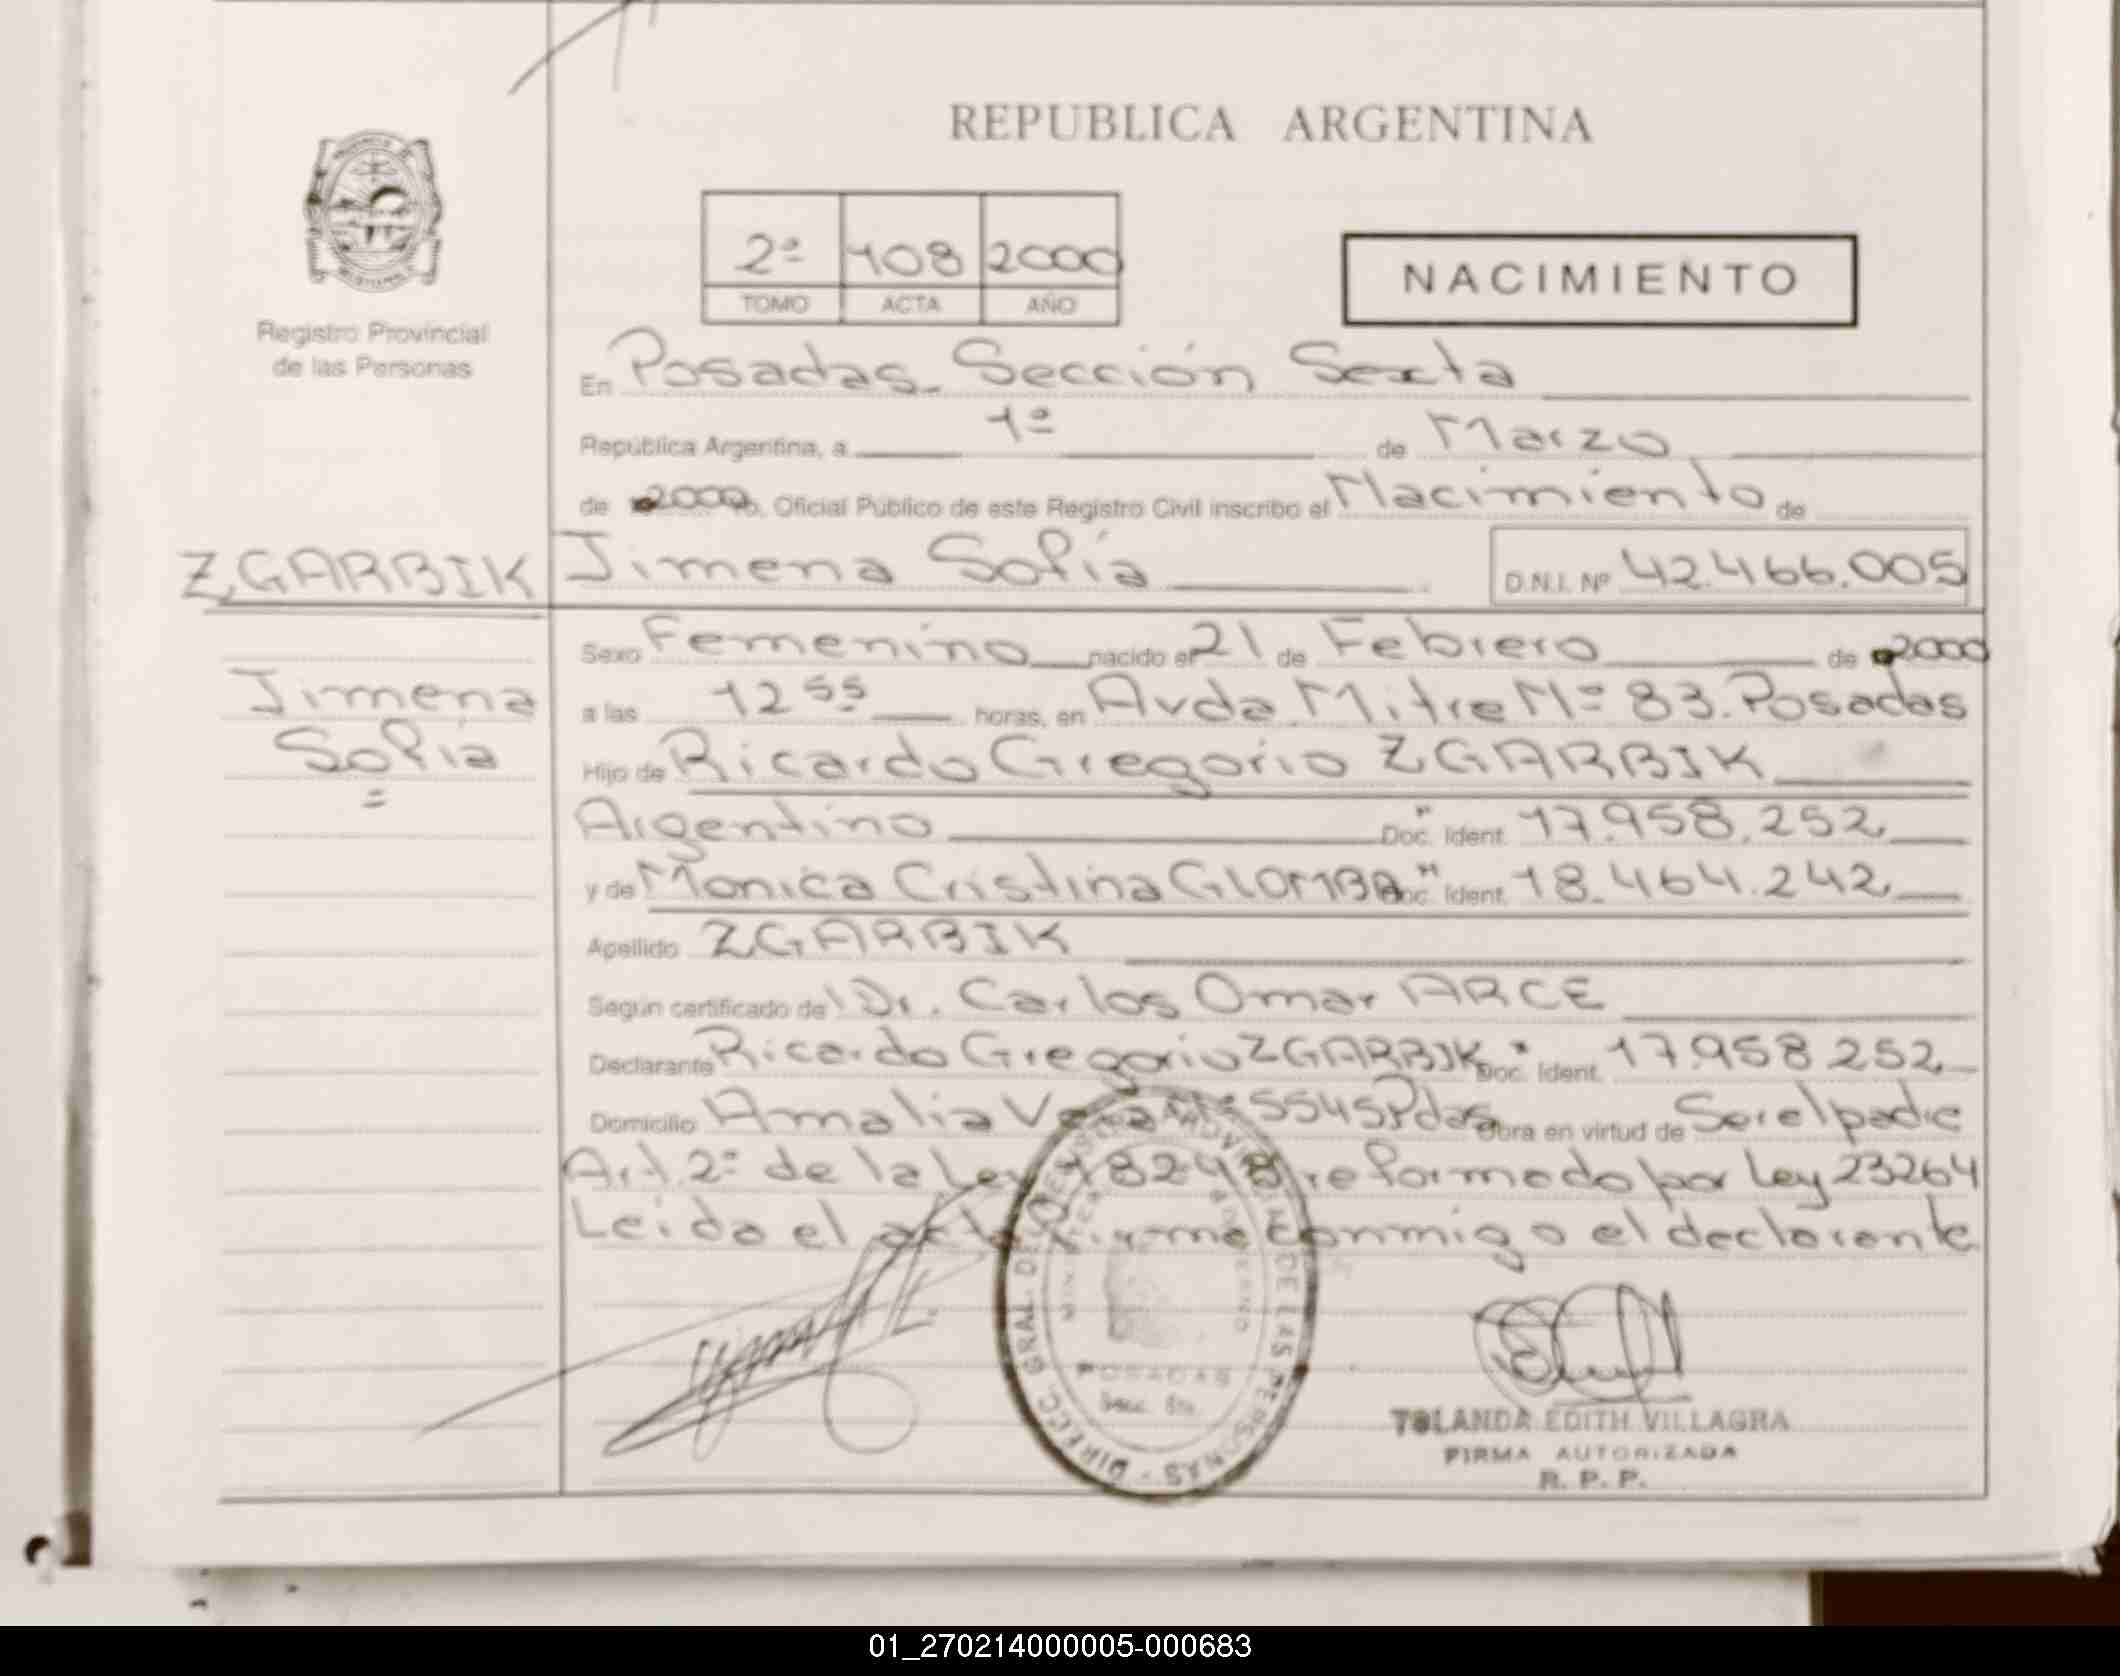 REPUBLICA ARGENTINA
2ª 108 2000
TOMO ACTA AÑO
NACIMIENTO
Registro Provincial
de las Personas
En Posadas. Sección Sexta
República Argentina, a 1º de Marzo
de 2000, Oficial Público de este Registro Civil inscribo el Nacimiento de
ZGARBIK Jimena Sofía D.N.I. Nº 42.466.005
Jimena
Sofía
=
Sexo Femenino nacido el 21 de Febrero de 2000
a las 12 55 horas, en Avda. Mitre Nº 83. Posadas
Hijo de Ricardo Gregorio ZGARBIK
Argentino Doc. Ident. 17.958.252
y de Monica Cristina GLOMBA Doc. Ident. 18.464.242
Apellido ZGARBIK
Según certificado de Dr. Carlos Omar ARCE
Declarante Ricardo Gregorio ZGARBIK Doc. Ident. 17.958 252
Domicilio Amalia Nº 5545 Pdas Obra en virtud de Ser el padre
Art. 2º de la Ley 18248 reformado por Ley 23264
Leida el acta firma conmigo el declarante
POSADAS
Secc. 6ta.
YOLANDA EDITH VILLAGRA
FIRMA AUTORIZADA
R. P. P.
01_270214000005-000683